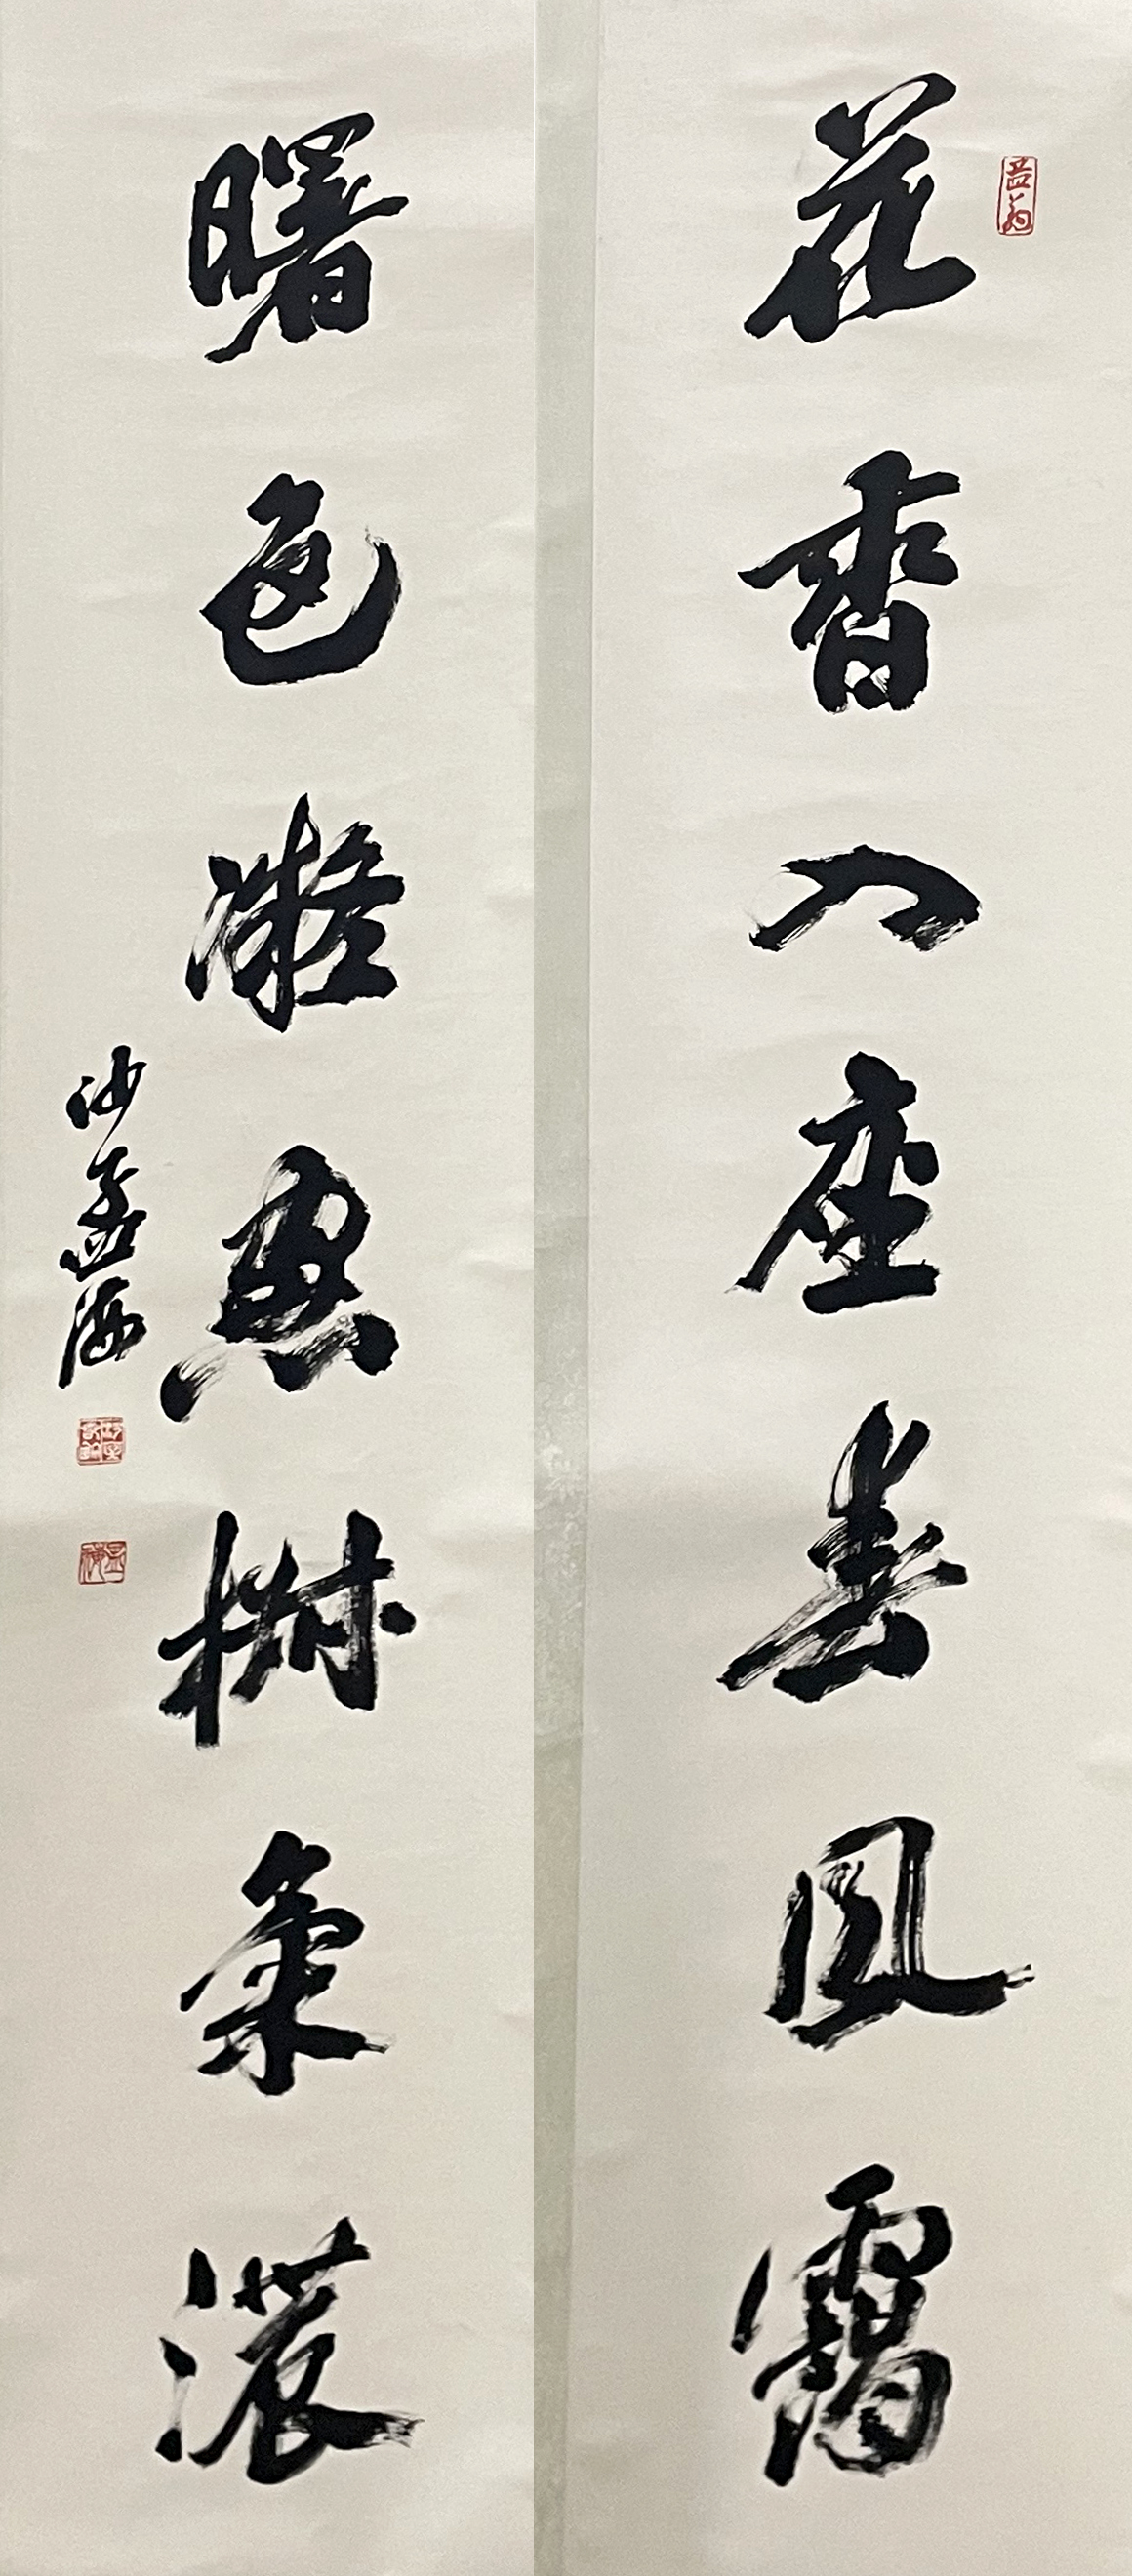 花香入座春風靄
曙色凝窗樹氣濃
沙孟海